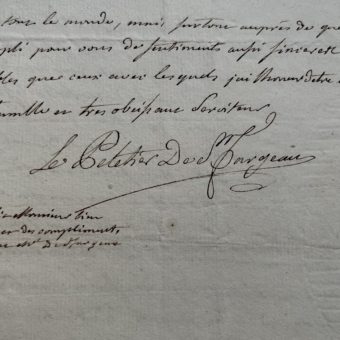 tout le monde, mais surtout auprès de que
pli pour vous de sentiments aussi sinceres et
les que ceux avec lesquels jai lhonneur detre
humble et tres obeissant Serviteur
Le Peletier De St fargeau
Monsieur bien
des compliments